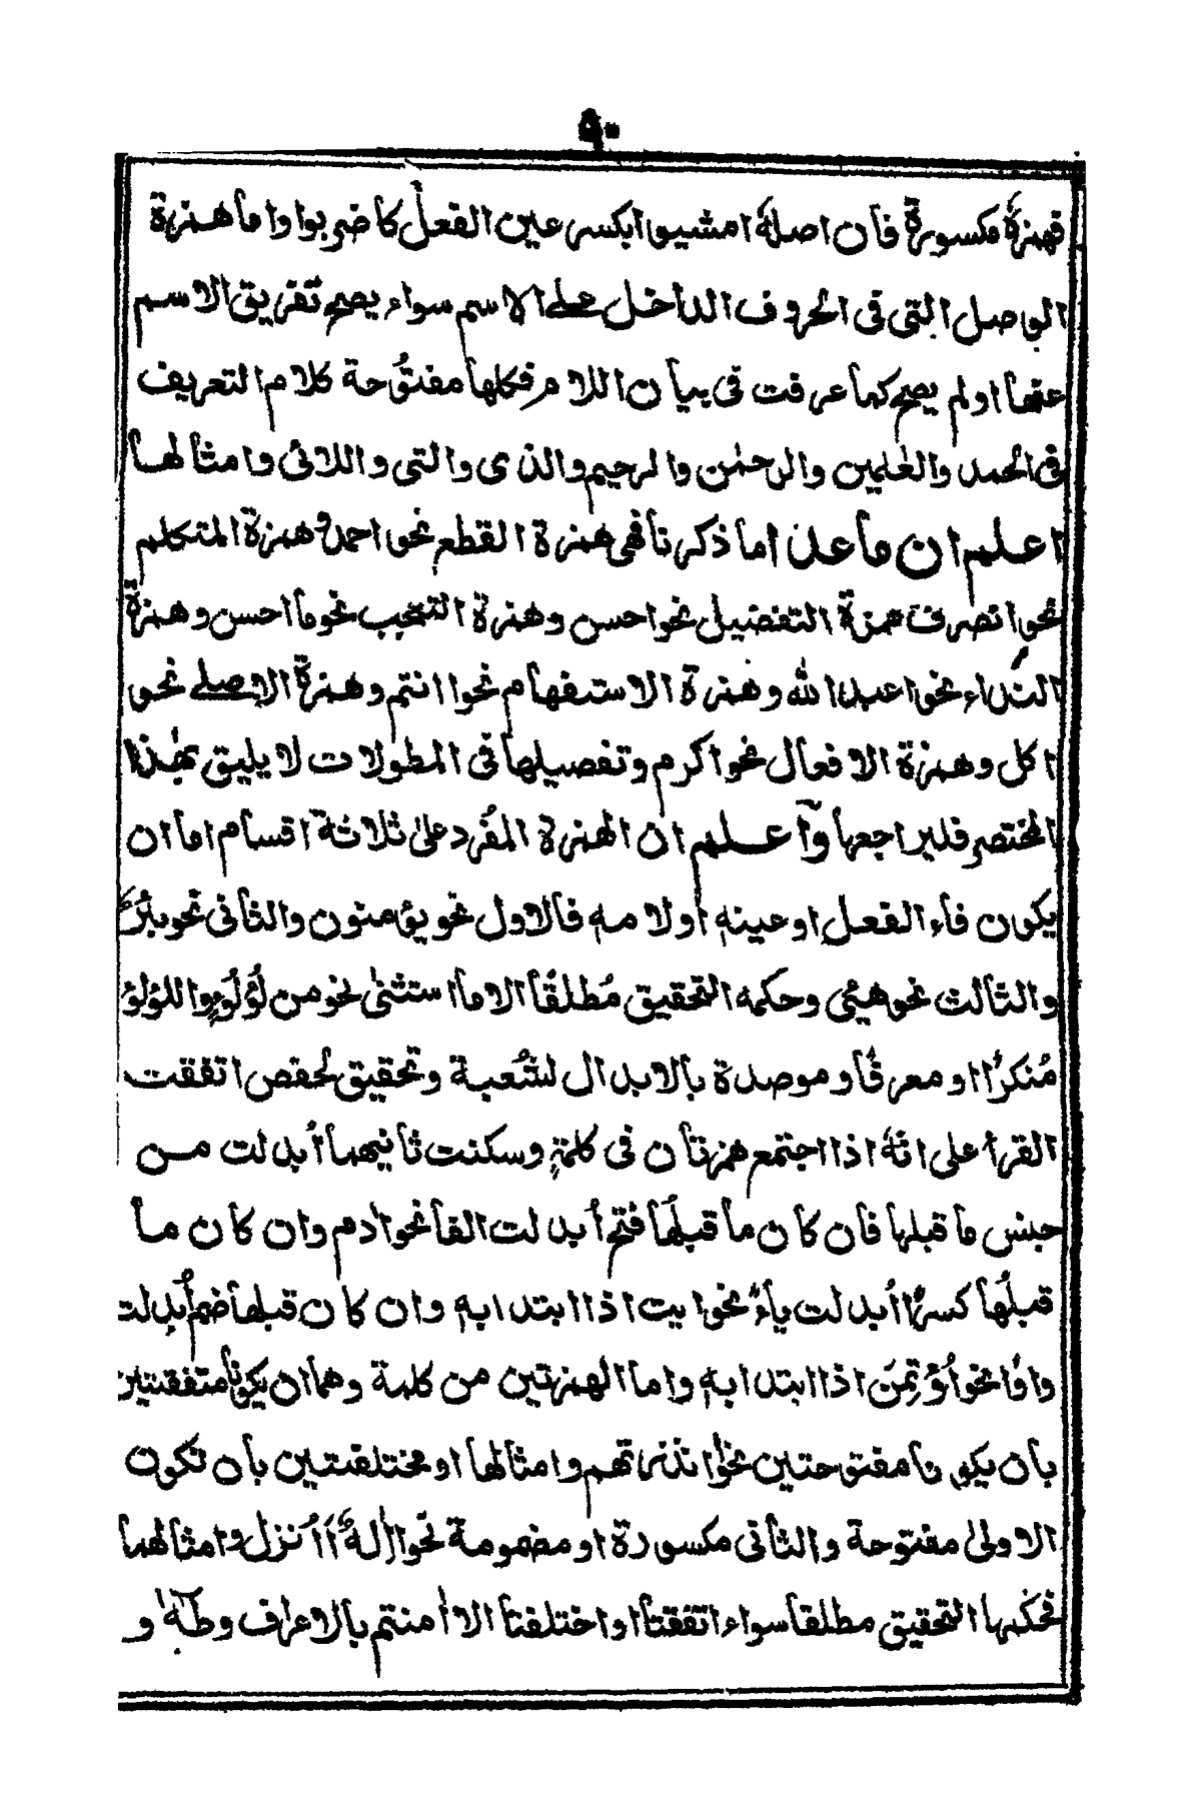 ٩٠
فهمزةٌ مكسورةٌ فأن اصلهُ امشيوا بكسر عين الفعل كاضربوا واما همزة
الوصل التى فى الحروف الداخل على الاسم سواء يصح تفريق الاسم
عنها او لم يصح كما عرفت فى بيان اللام فكلها مفتوحة كلام التعريف
فى الحمد والعٰلمين والرحمٰن والرحيم والذى والتى واللائى وامثالها
اعلم ان ماعدا ما ذكرنا فهى همزة القطع نحو احمد وهمزة المتكلم
نحو اتصرف همزة التفضيل نحو احسن وهمزة التعجب نحو ما احسن وهمزة
النداء نحو اعبد الله وهمزة الاستفهام نحو اانتم وهمزة الاصلے نحو
اكل وهمزة الافعال نحو اكرم وتفصيلها فى المطولات لا يليق بهٰذا
المختصر فليراجعها وآعلم ان الهمزة المفرد علىٰ ثلاثة اقسام اما ان
يكون فاء الفعل او عينهٖ او لامهٖ فالاول نحو يؤمنون والثانى نحو بئر
والثالث نحو هيئ وحكمه التحقيق مُطلقًا الا ما استثنىٰ نحو من لُؤلُؤٍ واللؤلؤ
مُنكرًا او معرفًا وموصدة بالابدال لشُعبة وتحقيق لحفص اتفقت
القرأ على انّهٗ اذا اجتمع همزتان فى كلمةٍ وسكنت ثانيهما أُبدلت من
جنس ما قبلها فان كان ما قبلَها فتح أبدلت الفا نحو اٰدم وان كان ما
قبلَها كسرًا أُبدلت ياءً نحو ايت اذا ابتدا بهٖ وان كان قبلها ضم أُبدلت
واوًا نحو اُؤتمن اذا ابتدا بهٖ واما الهمزتين من كلمة وهما ان يكونا متفقتين
بان يكونا مفتوحتين نحو ءانذرتهم وامثالها او مختلفتين بان تكون
الاولىٰ مفتوحة والثانى مكسورة او مضمومة نحو ءَاِلٰهٌ أَأُنزل وامثالهما
فحكمها التحقيق مطلقا سواء اتفقتا او اختلفتا الا اٰمنتم بالاعراف وطٰهٰ و